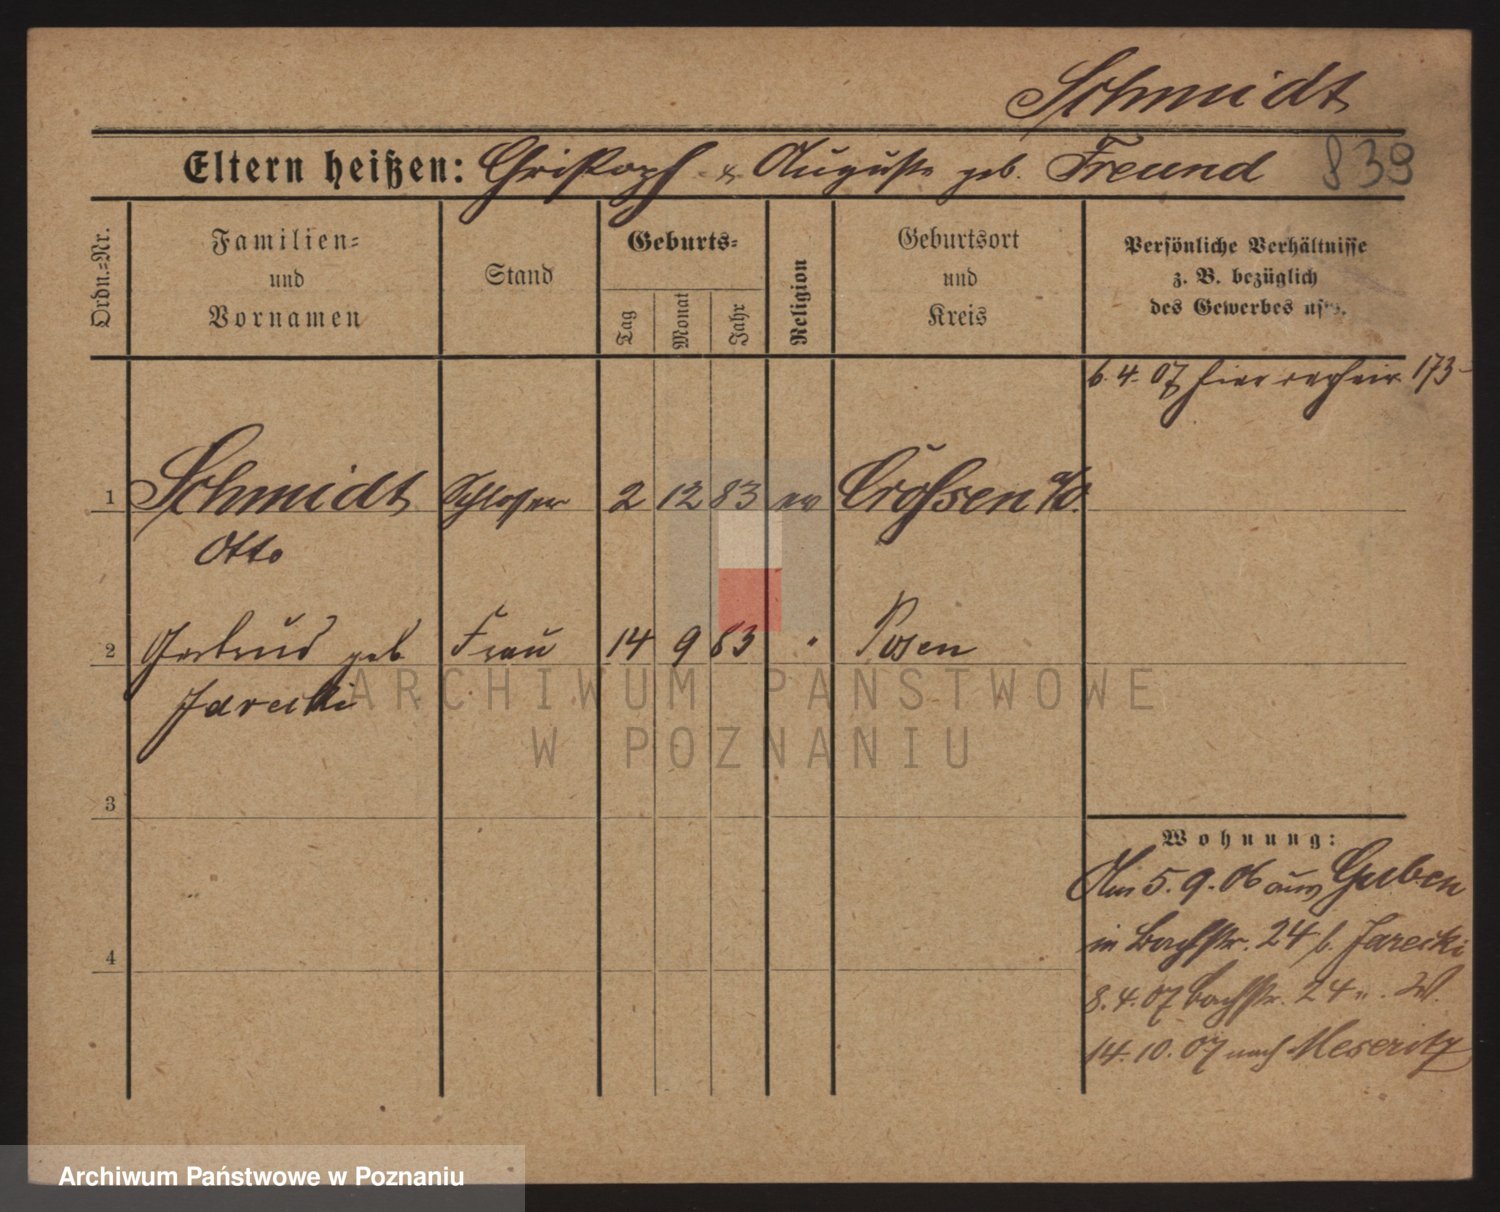 Schmidt
Eltern heißen: Christoph & Auguste geb. Freund 839
Ordn.=Nr.
Familien=
und
Vornamen
Stand
Geburts=
Tag
Monat
Jahr
Religion
Geburtsort
und
Kreis
Persönliche Verhältnisse
z. B. bezüglich
des Gewerbes usw.
6.4.07 hier 173
1 Schmidt Schlosser 2 12 83 ev Crossen a/O.
Otto
2 Gertrud geb Frau 14 9 83 " Posen
Jarecki
ARCHIWUM PAŃSTWOWE
W POZNANIU
3
4
Wohnung:
Am 5.9.06 aus Guben
in Bachstr. 24 b. Jarecki
8.4.07 Bachstr. 24 u. W.
14.10.07 nach Meseritz
Archiwum Państwowe w Poznaniu